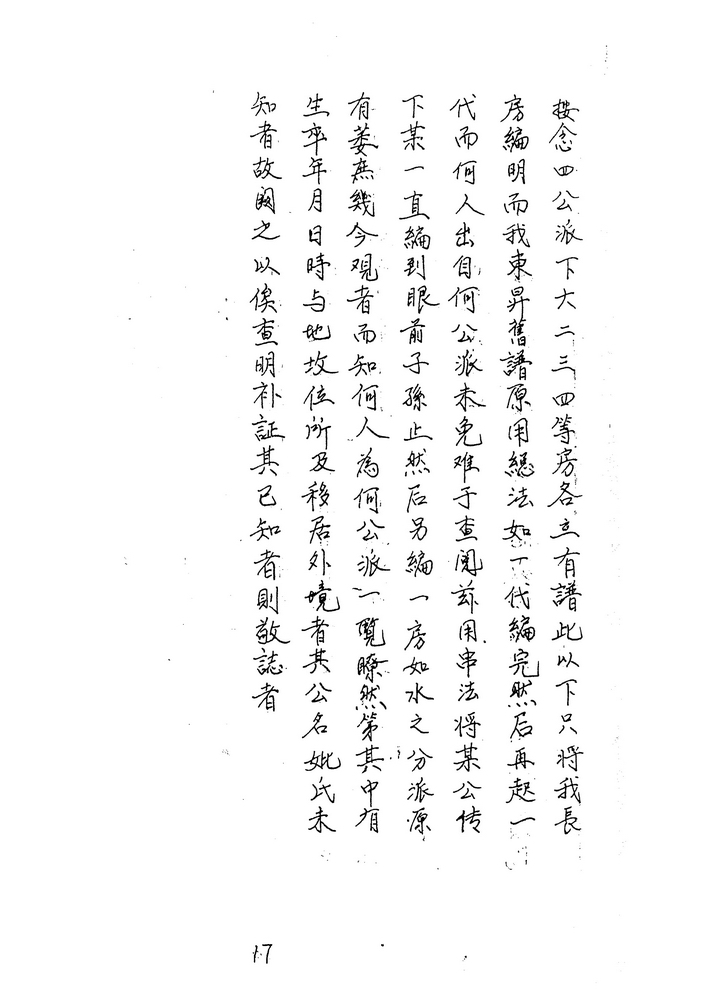 按念四公派下大二三四等房各立有譜此以下只将我長
房編明而我東昇舊譜原用總法如一代編完然后再起一
代而何人出自何公派未免难于查閲兹用串法将某公传
下某一直編到眼前子孫止然后另編一房如水之分派源
有蒌庶幾今观者而知何人為何公派一覧瞭然第其中有
生卒年月日時与地坟位所及移居外境者其公名妣氏未
知者故闕之以俟查明补証其已知者則敬誌者
17